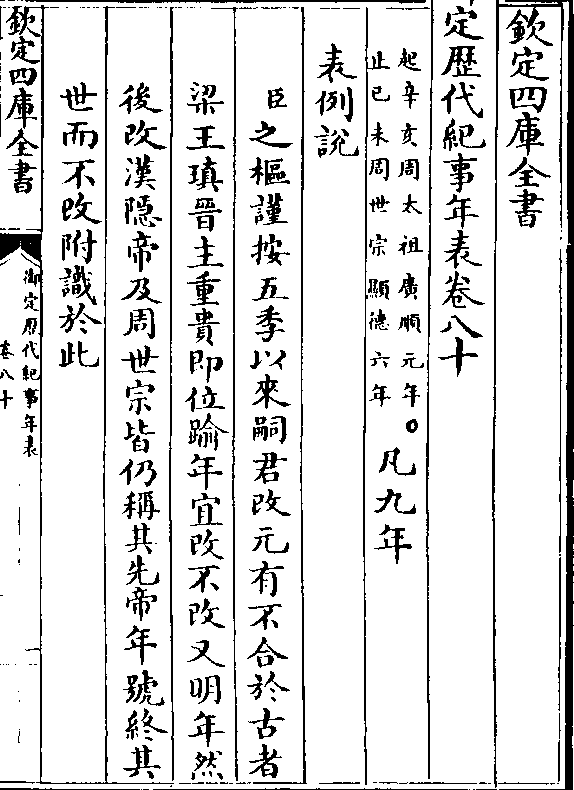 欽定四庫全書
定歴代紀事年表卷八十
起辛亥周太祖廣順元年
止己未周世宗顯德六年
凡九年
表例說
臣之樞謹按五季以來嗣君改元有不合於古者
梁王瑱晉主重貴即位踰年宜改不改又明年然
後改漢隠帝及周世宗皆仍稱其先帝年號終其
世而不改附識於此
欽定四庫全書
御定歴代紀事年表
卷八十
一